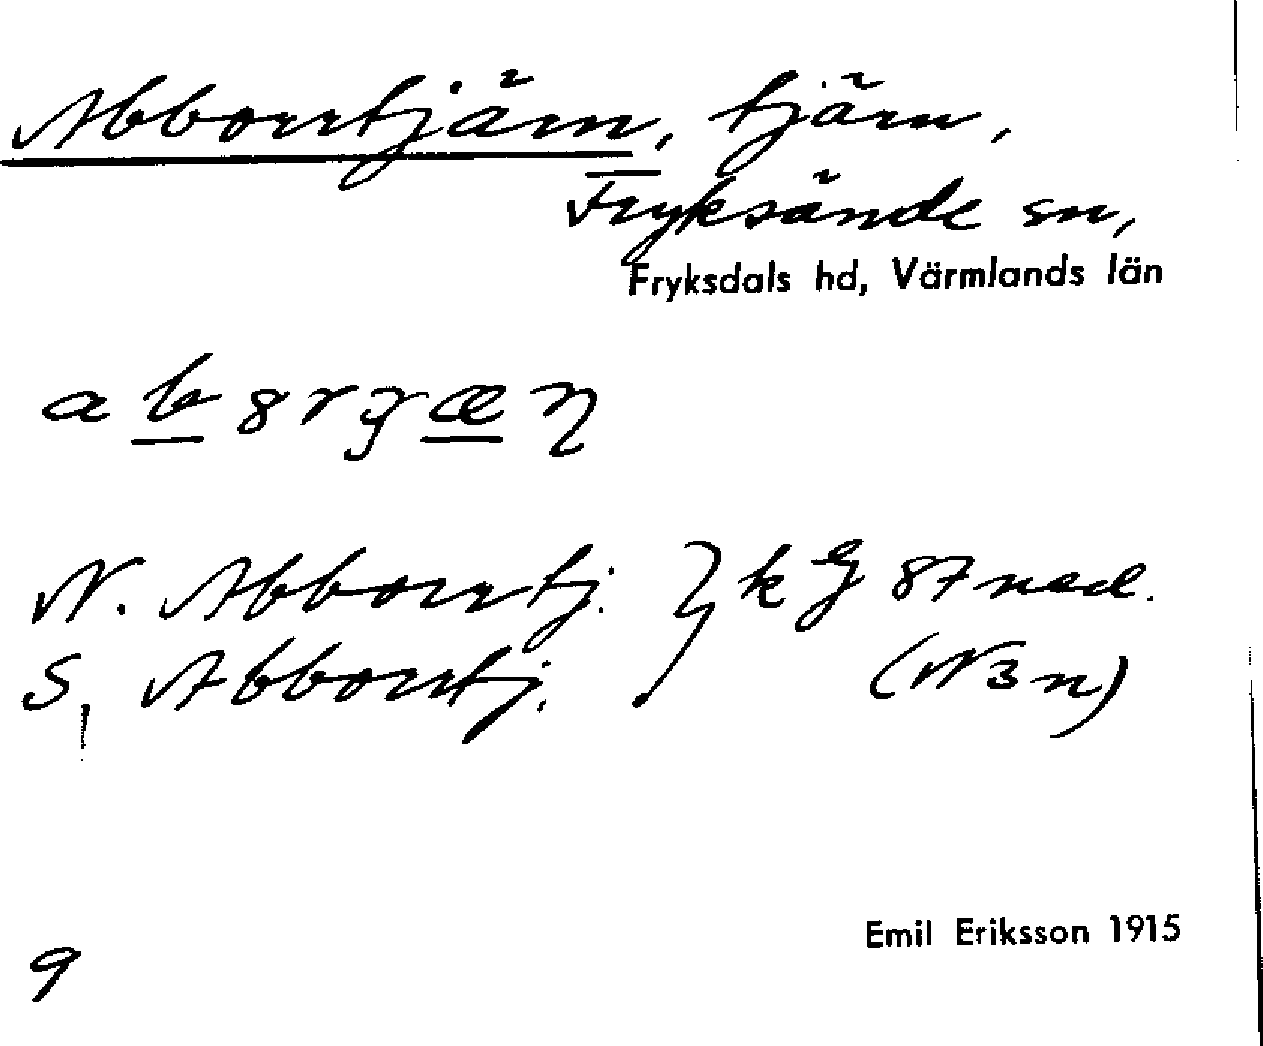 Abborrtjärn, tjärn,
Fryksände sn,
Fryksdals hd, Värmlands län
N. Abborrtj.
S. Abborrtj. } k g 87 ned.
(N 3 n)
Emil Eriksson 1915
9